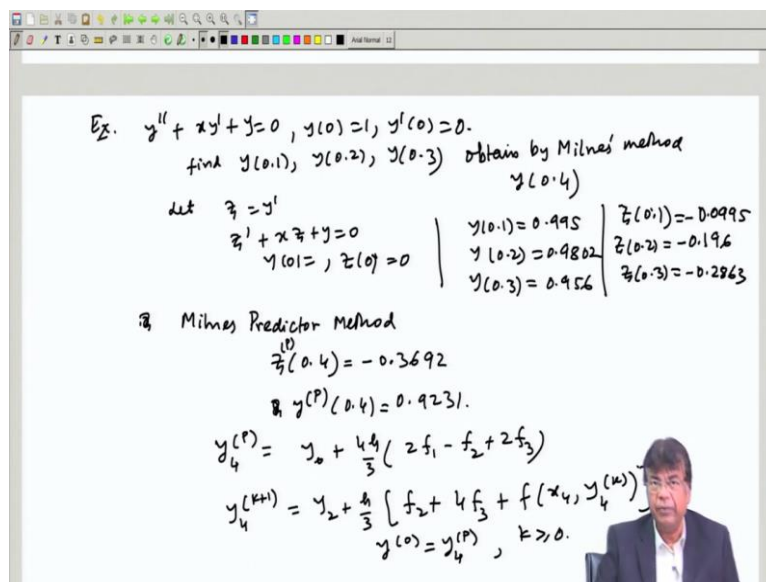 Arial Normal 12
Ex. y'' + xy' + y = 0 , y(0) = 1, y'(0) = 0.
find y(0.1), y(0.2), y(0.3) obtain by Milnes' method
y(0.4)
Let z = y'
z' + xz + y = 0
y(0) = , z(0) = 0
y(0.1) = 0.995
y(0.2) = 0.9802
y(0.3) = 0.956
z(0.1) = -0.0995
z(0.2) = -0.196
z(0.3) = -0.2863
Milnes Predictor Method
z^(P)(0.4) = -0.3692
y^(P)(0.4) = 0.9231.
y_4^(P) = y_0 + 4h/3 ( 2f_1 - f_2 + 2f_3 )
y_4^(k+1) = y_2 + h/3 [ f_2 + 4f_3 + f(x_4, y_4^(k)) ]
y^(0) = y_4^(P) , k ≥ 0.